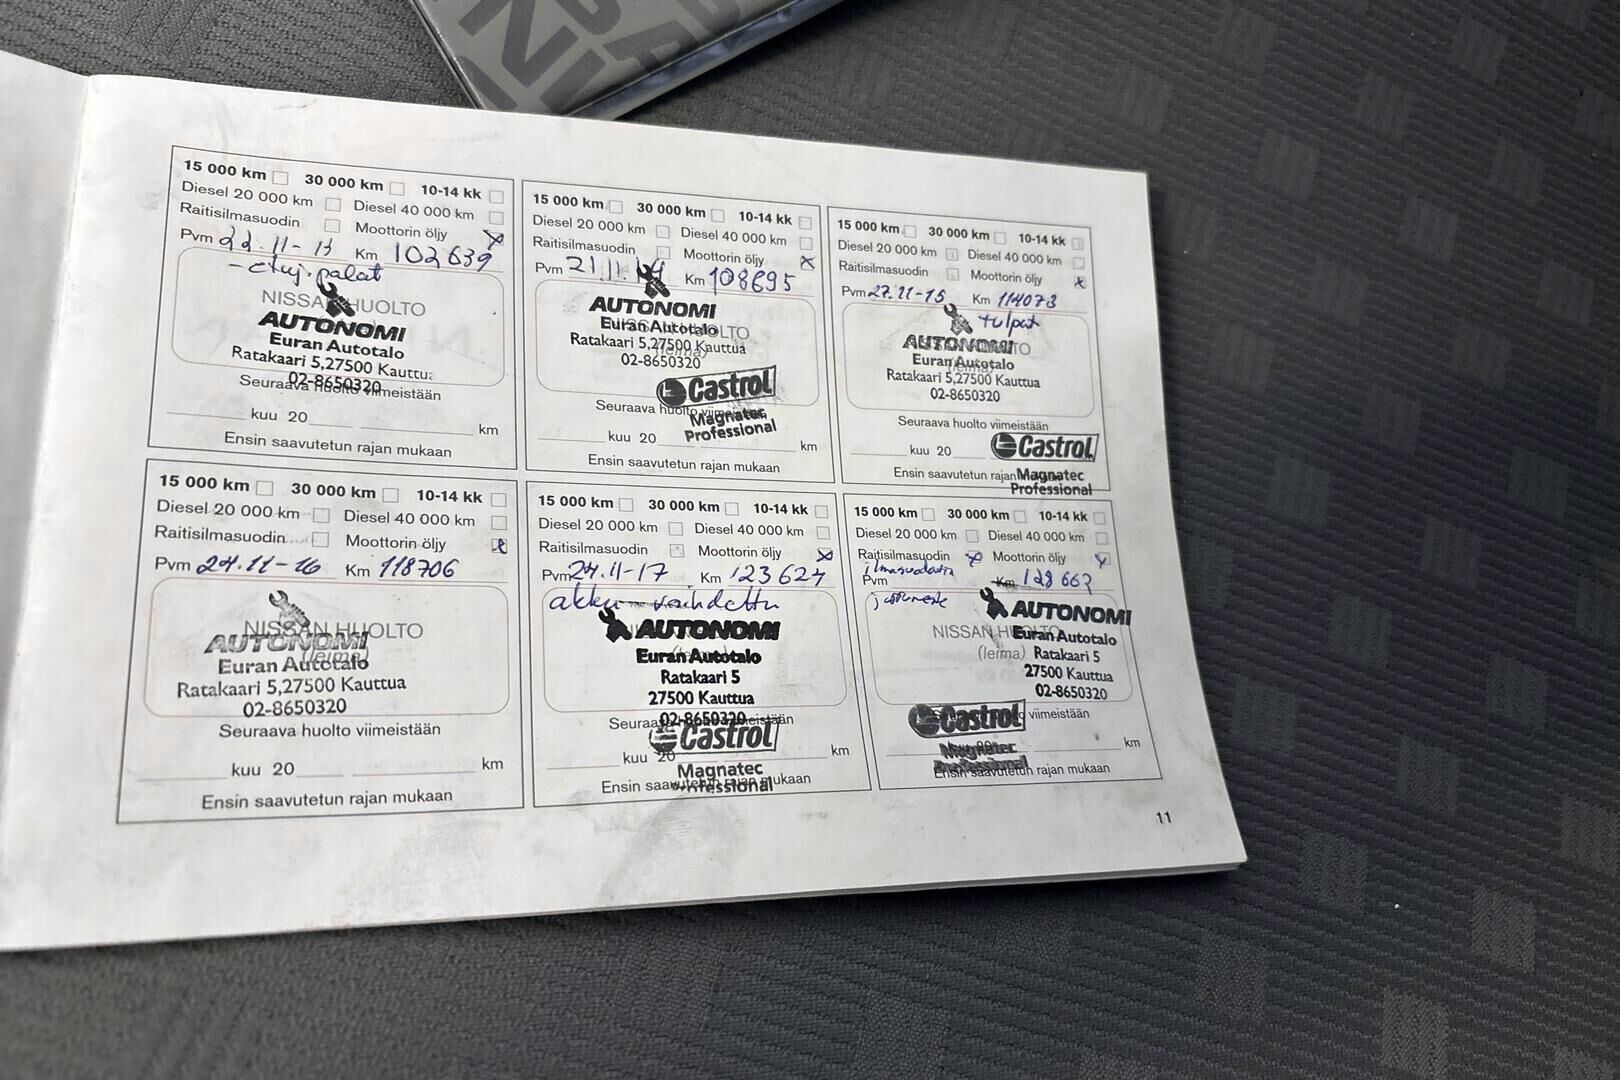 15 000 km 30 000 km 10-14 kk
Diesel 20 000 km Diesel 40 000 km
Raitisilmasuodin Moottorin öljy
Pvm 22.11-13 Km 102639
-etuj.palat
NISSAN HUOLTO
AUTONOMI
Euran Autotalo
Ratakaari 5,27500 Kauttua
02-8650320
Seuraava huolto viimeistään
kuu 20 km
Ensin saavutetun rajan mukaan
15 000 km 30 000 km 10-14 kk
Diesel 20 000 km Diesel 40 000 km
Raitisilmasuodin Moottorin öljy
Pvm 21.11.14 Km 108695
AUTONOMI
Euran Autotalo
NISSAN HUOLTO
Ratakaari 5,27500 Kauttua
(leima)
02-8650320
Castrol
Seuraava huolto viimeistään
Magnatec
Professional
kuu 20 km
Ensin saavutetun rajan mukaan
15 000 km 30 000 km 10-14 kk
Diesel 20 000 km Diesel 40 000 km
Raitisilmasuodin Moottorin öljy
Pvm 27.11-15 Km 114073
tulpat
AUTONOMI
Euran Autotalo
Ratakaari 5,27500 Kauttua
02-8650320
Seuraava huolto viimeistään
kuu 20
Castrol
Ensin saavutetun rajan
Magnatec
Professional
15 000 km 30 000 km 10-14 kk
Diesel 20 000 km Diesel 40 000 km
Raitisilmasuodin Moottorin öljy
Pvm 24.11-16 Km 118706
NISSAN HUOLTO
AUTONOMI
(leima)
Euran Autotalo
Ratakaari 5,27500 Kauttua
02-8650320
Seuraava huolto viimeistään
kuu 20 km
Ensin saavutetun rajan mukaan
15 000 km 30 000 km 10-14 kk
Diesel 20 000 km Diesel 40 000 km
Raitisilmasuodin Moottorin öljy
Pvm 24.11-17 Km 123624
akku vaihdettu
AUTONOMI
Euran Autotalo
Ratakaari 5
27500 Kauttua
02-8650320
Seuraava huolto viimeistään
Castrol
kuu 20 km
Magnatec
Professional
Ensin saavutetun rajan mukaan
15 000 km 30 000 km 10-14 kk
Diesel 20 000 km Diesel 40 000 km
Raitisilmasuodin Moottorin öljy
ilmansuodatin
Pvm Km 128662
jarruneste
AUTONOMI
NISSAN HUOLTO
Euran Autotalo
(leima)
Ratakaari 5
27500 Kauttua
02-8650320
Castrol
viimeistään
km
Magnatec
Professional
Ensin saavutetun rajan mukaan
11